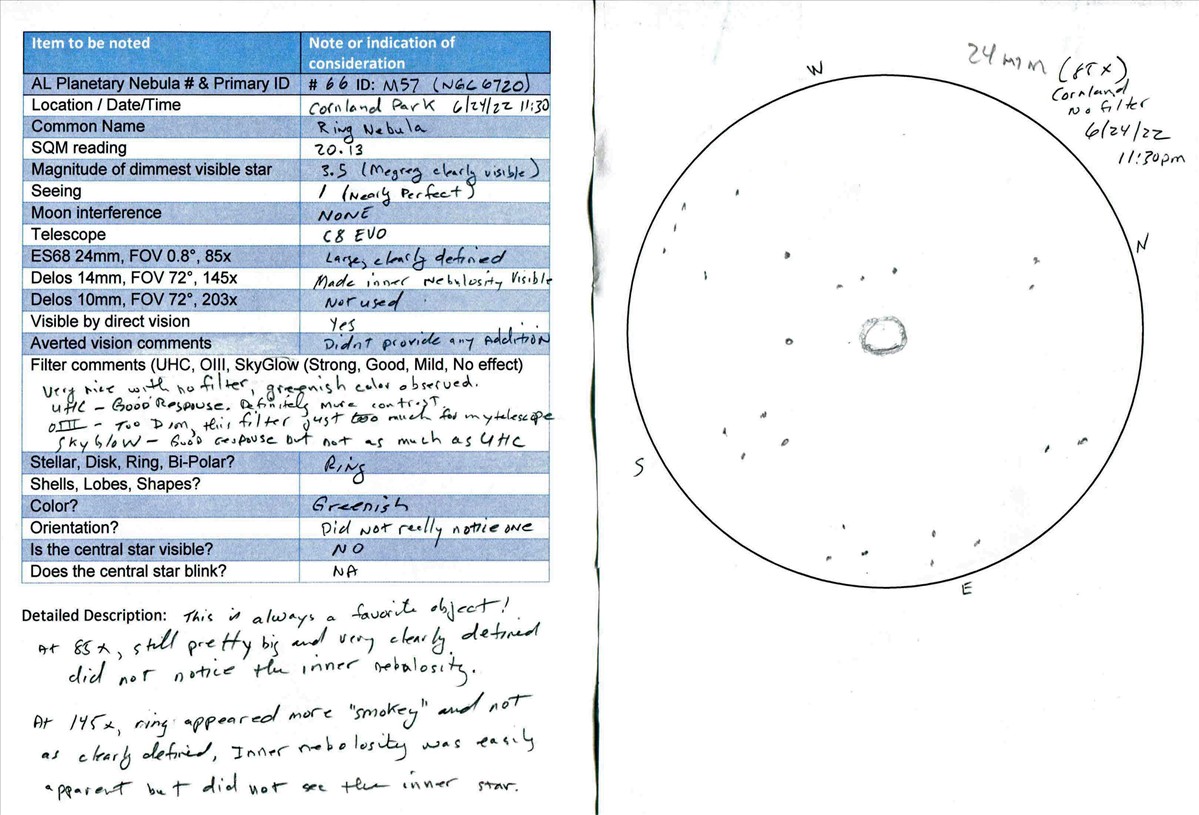 Item to be noted
Note or indication of
consideration
AL Planetary Nebula # & Primary ID
# 66 ID: M57 (NGC 6720)
Location / Date/Time
Cornland Park 6/24/22 11:30
Common Name
Ring Nebula
SQM reading
20.13
Magnitude of dimmest visible star
3.5 (Megrez clearly visible)
Seeing
1 (Nearly Perfect)
Moon interference
NONE
Telescope
C8 EVO
ES68 24mm, FOV 0.8°, 85x
Large, clearly defined
Delos 14mm, FOV 72°, 145x
Made inner Nebulosity Visible
Delos 10mm, FOV 72°, 203x
Not used
Visible by direct vision
Yes
Averted vision comments
Didn't provide any Addition
Filter comments (UHC, OIII, SkyGlow (Strong, Good, Mild, No effect)
Very nice with no filter, greenish color observed.
UHC – Good Response. Definitely more contrast.
OIII – Too Dim, this filter just too much for my telescope
SkyGlow – Good response but not as much as UHC
Stellar, Disk, Ring, Bi-Polar?
Ring
Shells, Lobes, Shapes?
Color?
Greenish
Orientation?
Did not really notice one
Is the central star visible?
NO
Does the central star blink?
NA
Detailed Description: This is always a favorite object!
At 85x, still pretty big and very clearly defined
did not notice the inner nebalosity.
At 145x, ring appeared more "smokey" and not
as clearly defined, Inner nebolosity was easily
apparent but did not see the inner star.
24mm (85x)
Cornland
No filter
6/24/22
11:30pm
W
N
S
E